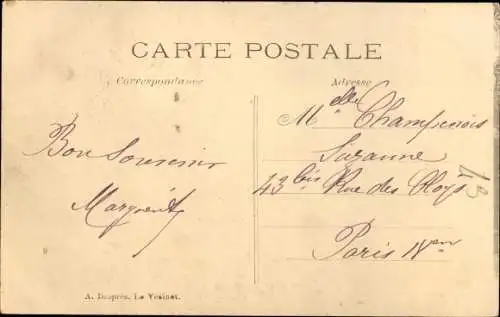 CARTE POSTALE
Correspondance
Adresse
Bon Souvenir
Marguerite
Melle Champenois
Suzanne
43 bis Rue des Cloys
Paris 18em
43
A. Desprès. Le Vésinet.